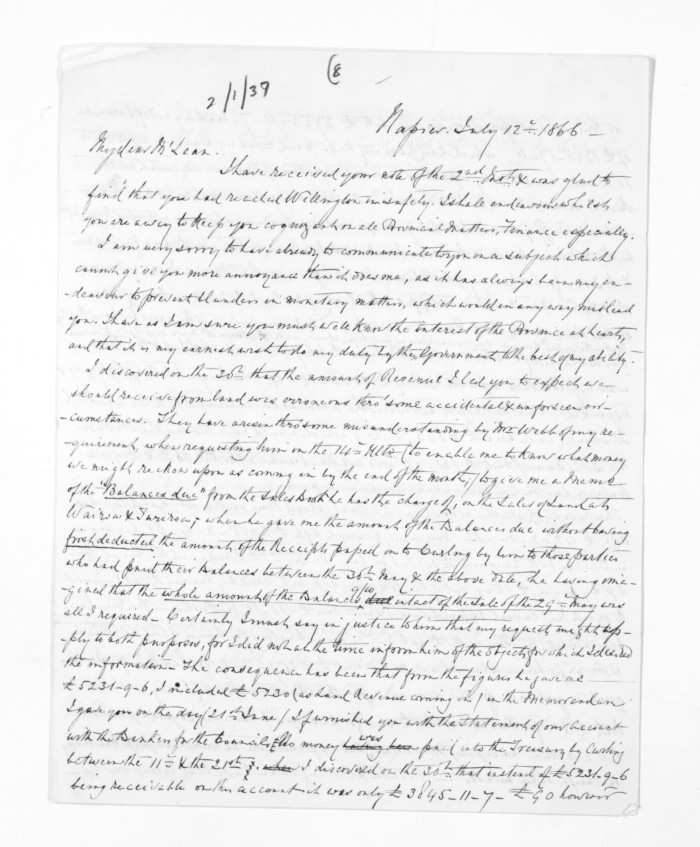 (8
2/1/39
Napier. July 12th. 1866 -
My dear McLean.
I have received your note of the 2nd Inst. & was glad to
find that you had reached Wellington in safety. I shall endeavour whilst
you are away to keep you cognizant on all Provincial Matters, Finance especially.
I am very sorry to have already to communicate to you on a subject which
cannot give you more annoyance than it does me, as it has always been my en-
-deavour to prevent blunders in monetary matters, which would in any way mislead
you. I have as I am sure you must well know the interest of the Province at heart,
and that it is my earnest wish to do my duty by the Government to the best of my ability.
I discovered on the 30th that the amount of Revenue I led you to expect we
should receive from land was erroneous thro' some accidental & unforseen cir-
-cumstances. They have arisen thro' some misunderstanding by Mr Webb of my re-
quirement, when requesting him on the 14th Ulto (to enable me to know what money
we might reckon upon as coming in by the end of the month,) to give me a Memo
of the "Balances due" from the Sales Book he has the charge of, on the Sales of Land at
Wairoa & Turiroa; when he gave me the amount of the Balances due without having
first deducted the amount of the Receipts passed on to Curling by him to those parties
who had paid their Balances between the 30th May & the above date, he having ima-
-gined that the whole amount of the Balances due intact of the Sale of the 29th May was
all I required - Certainly I must say in justice to him that my request might ap-
-ply to both purposes, for I did not at the time inform him of the object for which I desired
the information - The consequence has been that from the figures he gave me
£5231-9-6, I included £5230 (as land Revenue coming in) in the Memorandum
I gave you on the day (21st June) I furnished you with the Statement of our account
with the Bank for the Council; No money having been was paid into the Treasury by Curling
between the 11th & the 21st; when I discovered on the 30th that instead of £5231-9-6
being receivable on this account it was only £3845-11-7 - £90 however